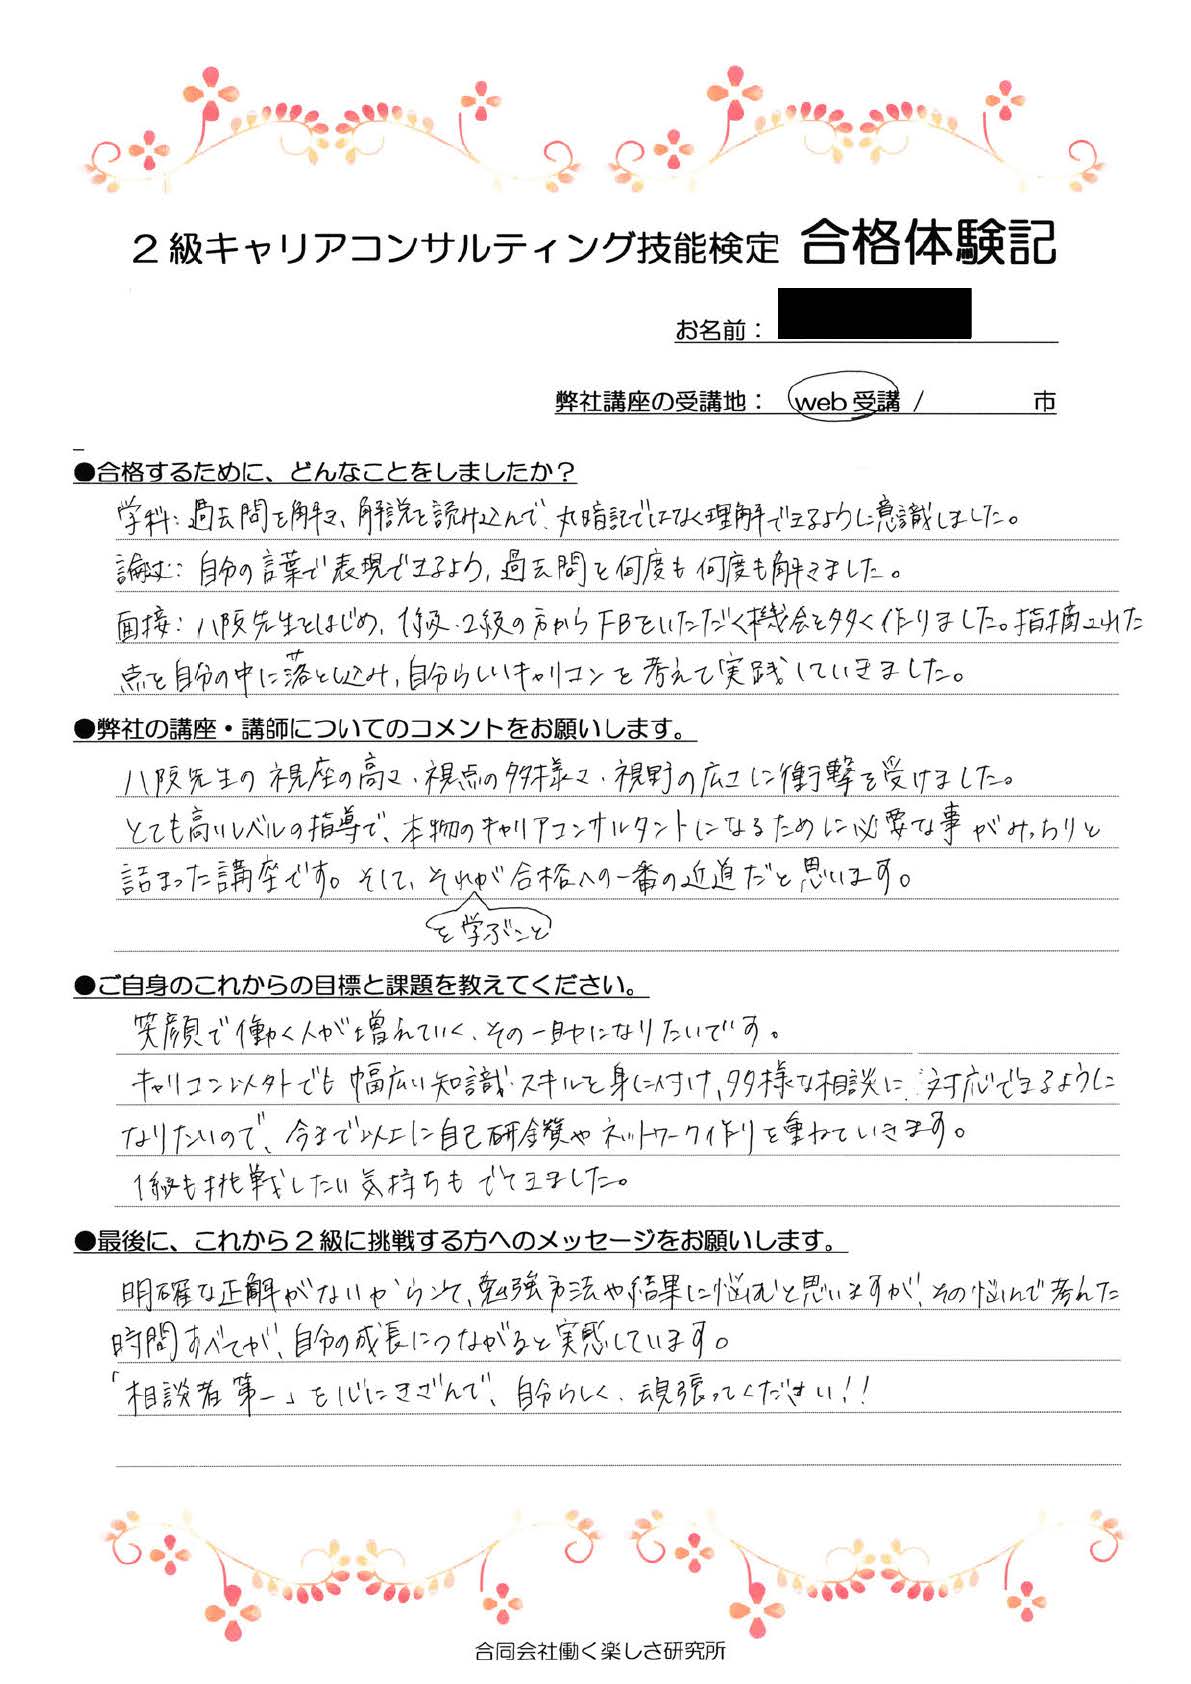 2級キャリアコンサルティング技能検定 合格体験記
お名前：
弊社講座の受講地： web受講 / 市
●合格するために、どんなことをしましたか？
学科：過去問を解き、解説を読み込んで、丸暗記ではなく理解できるように意識しました。
論述：自分の言葉で表現できるよう、過去問を何度も何度も解きました。
面接：八阪先生をはじめ、1級・2級の方からFBをいただく機会を多く作りました。指摘された
点を自分の中に落とし込み、自分らしいキャリコンを考えて実践していきました。
●弊社の講座・講師についてのコメントをお願いします。
八阪先生の視座の高さ、視点の多様さ、視野の広さに衝撃を受けました。
とても高いレベルの指導で、本物のキャリアコンサルタントになるために必要な事がみっちりと
詰まった講座です。そして、それが合格への一番の近道だと思います。
を学ぶこと
●ご自身のこれからの目標と課題を教えてください。
笑顔で働く人が増えていく、その一助になりたいです。
キャリコン以外でも幅広い知識・スキルを身に付け、多様な相談に対応できるように
なりたいので、今まで以上に自己研鑽やネットワーク作りを重ねていきます。
1級も挑戦したい気持ちもでてきました。
●最後に、これから2級に挑戦する方へのメッセージをお願いします。
明確な正解がないからこそ、勉強方法や結果に悩むと思いますが、その悩んで考えた
時間すべてが、自分の成長につながると実感しています。
「相談者第一」を心にきざんで、自分らしく、頑張ってください！！
合同会社働く楽しさ研究所